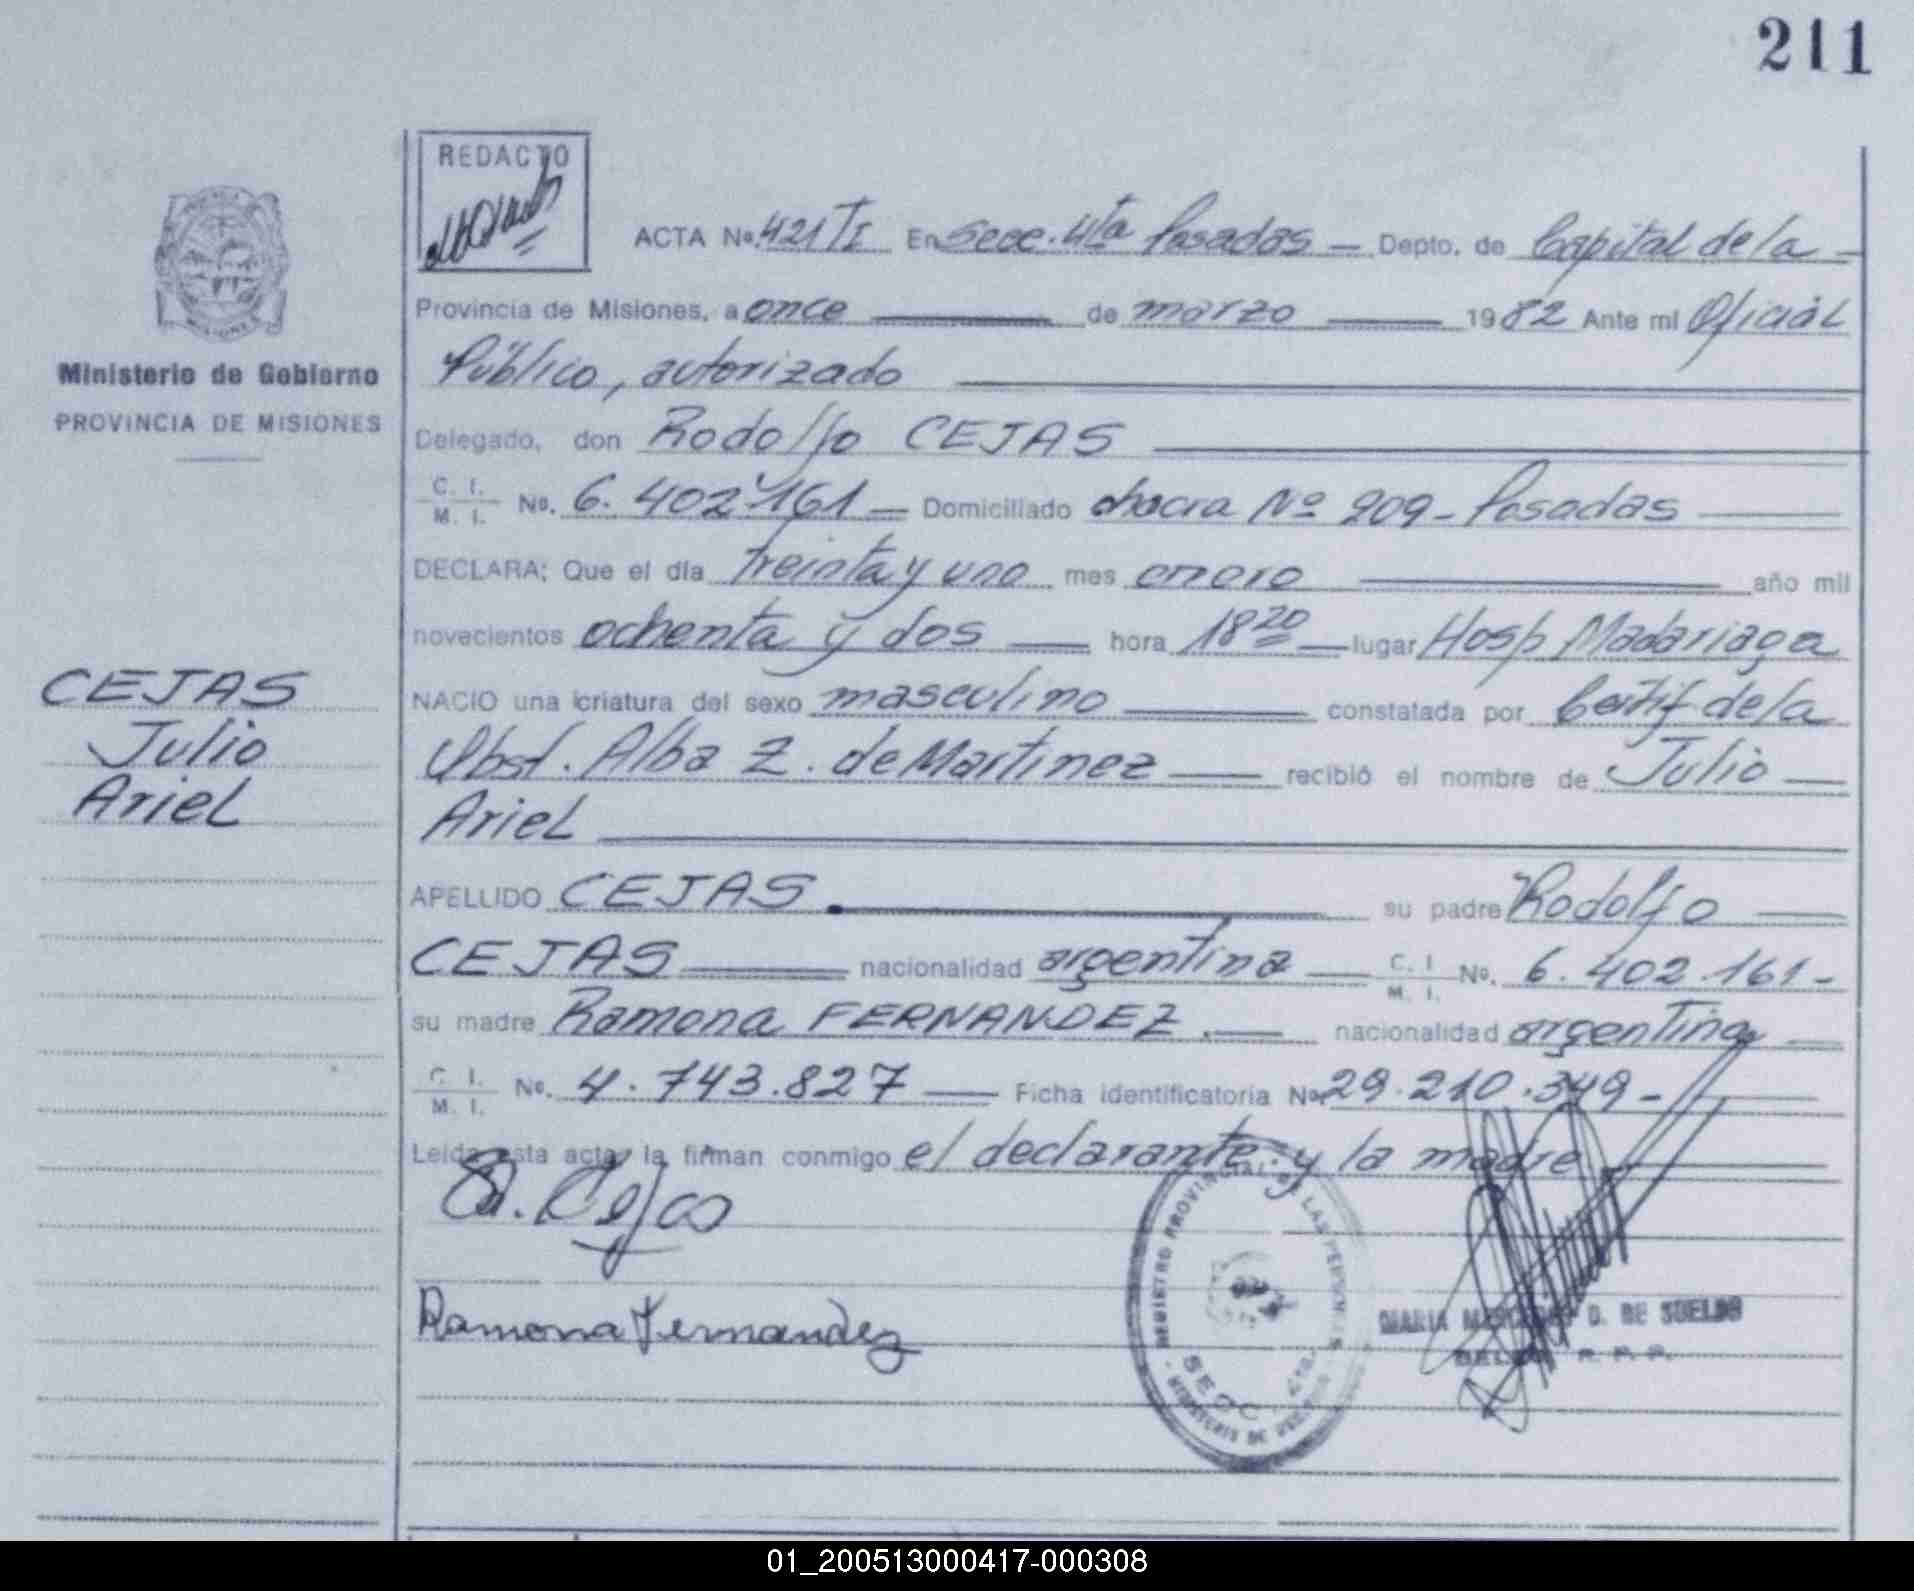 211
REDACTO
ACTA No. 421 TI En Secc. 4ta Posadas — Depto. de Capital de la —
Provincia de Misiones, a once — de marzo — 1982 Ante mi Oficial
Ministerio de Gobierno
PROVINCIA DE MISIONES
Público, autorizado —
Delegado, don Rodolfo CEJAS —
C. I. M. I. No. 6.402.161 — Domiciliado chacra Nº 209 - Posadas —
DECLARA: Que el día treinta y uno mes enero — año mil
novecientos ochenta y dos — hora 18 20 — lugar Hosp Madariaga
CEJAS
Julio
Ariel
NACIO una criatura del sexo masculino — constatada por Certif de la
Obst. Alba Z. de Martinez — recibió el nombre de Julio —
Ariel —
APELLIDO CEJAS. — su padre Rodolfo —
CEJAS — nacionalidad argentina — C. I. M. I. No. 6.402.161 -
su madre Ramona FERNANDEZ. — nacionalidad argentina —
C. I. M. I. No. 4.743.827 — Ficha identificatoria No. 29.210.349 -
Leída esta acta, la firman conmigo el declarante y la madre —
R. Cejas
Ramona Fernandez
REGISTRO PROVINCIAL DE LAS PERSONAS
SECC. 4ta.
MARIA D. DE SUELDO
R. P. P.
01_200513000417-000308